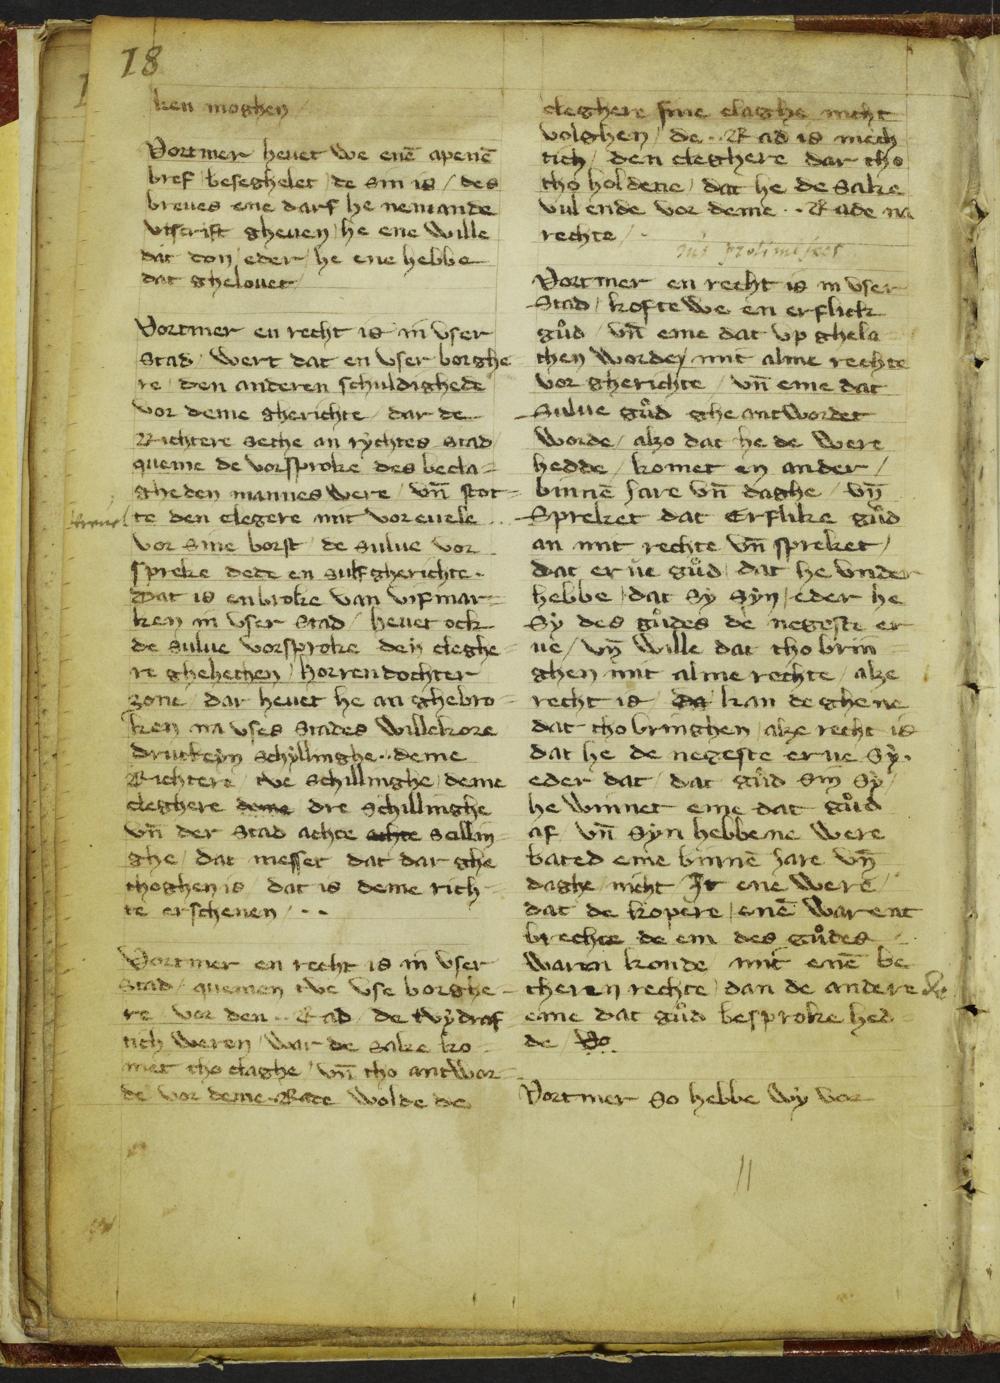 18
ken moghen /
Vortmer heuet we enē apenē
bref / beseghelet / de sin is / des
breues ene darf he nemande
vtscrift gheuen / he ene wille
dat don / eder / he ene hebbe
dat ghelouet /
Vortmer en recht is in vser
Stad / wert dat en vser borghe
re / den anderen schuldighede
vor deme gherichte / dar de
Richtere sethe an rychtes stad /
queme de vorsproke des becla=
gheden mannes were / vn̄ stot=
te den clegere mit voreuele
vor sine borst / de sulue vor
spreke dede en sulfgherichte
Dat is en broke van vif mar=
ken in vser stad / heuet ock
de sulue vorsproke den cleghe=
re ghehethen / horrendochter
zone / dar heuet he an ghebro=
ken na vses stades willekore
drutteyn schyllinghe .. deme
Richtere / twe schillinghe / deme
cleghere deme dre schillinghe
vn̄ der stad achte achte scillin=
ghe / dat messet dat dar ghe
thoghen is / dat is deme rich=
te erschenen / ..
Vortmer en recht is in vser
Stad / quemen twe vse borghe=
re / vor den .. Rad / de twydraf
tich weren / war de sake ko=
met tho claghe / vn̄ tho antwor=
de vor deme .. Rade wolde de
cleghere sine claghe nicht
volghen / de .. Rad is mech
tich / den cleghere dar tho
tho holdene / dat he de sake
vul ende vor deme .. Rade na
rechte /
Vortmer en recht is in vser
Stad / kofte we en erflick
gůd / vn̄ eme dat vp ghela
then worde / mit alme rechte
vor gherichte / vn̄ eme dat
Sulue gůd gheantwordet
worde / alzo dat he de were
hedde / komet en ander /
binnē Jare vn̄ daghe / vn̄
Spreket dat Erflike gůd
an mit rechte vn̄ spreket /
dat erue gůd / dat he vnder
hebbe / dat sy syn / eder he
sy des gůdes de negeste er
ue / vn̄ wille dat tho brin
ghen mit alme rechte / alze
recht is / kan de ghene
dat tho bringhen / alze recht is
dat he de negeste erue sy .
eder dat / dat gůd sin sy /
he winnet eme dat gůd
af / vn̄ syn hebbene were
bated eme binnē Jare vn̄
daghe / nicht / It ene were /
dat de kopere / enē warent
brechte de em des gůdes
waren konde / mit enē be
theren rechte / dan de andere de
eme dat gůd besproke hed
de /
Vortmer so hebbe wy vor
11